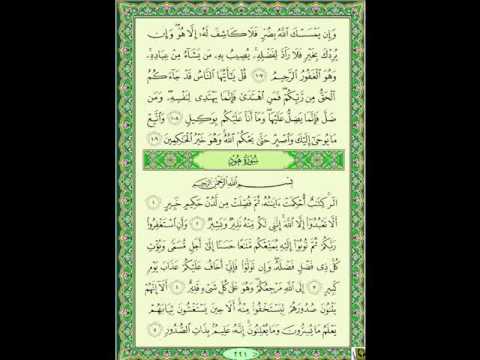 وَإِن يَمْسَسْكَ اللَّهُ بِضُرٍّ فَلَا كَاشِفَ لَهُ إِلَّا هُوَ وَإِن
يُرِدْكَ بِخَيْرٍ فَلَا رَادَّ لِفَضْلِهِ يُصِيبُ بِهِ مَن يَشَاءُ مِنْ عِبَادِهِ
وَهُوَ الْغَفُورُ الرَّحِيمُ ١٠٧ قُلْ يَا أَيُّهَا النَّاسُ قَدْ جَاءَكُمُ
الْحَقُّ مِن رَّبِّكُمْ فَمَنِ اهْتَدَى فَإِنَّمَا يَهْتَدِي لِنَفْسِهِ وَمَن
ضَلَّ فَإِنَّمَا يَضِلُّ عَلَيْهَا وَمَا أَنَا عَلَيْكُم بِوَكِيلٍ ١٠٨ وَاتَّبِعْ
مَا يُوحَى إِلَيْكَ وَاصْبِرْ حَتَّى يَحْكُمَ اللَّهُ وَهُوَ خَيْرُ الْحَاكِمِينَ ١٠٩
سُورَةُ هُودٍ
بِسْمِ اللَّهِ الرَّحْمَنِ الرَّحِيمِ
الر كِتَابٌ أُحْكِمَتْ آيَاتُهُ ثُمَّ فُصِّلَتْ مِن لَّدُنْ حَكِيمٍ خَبِيرٍ ١
أَلَّا تَعْبُدُوا إِلَّا اللَّهَ إِنَّنِي لَكُم مِّنْهُ نَذِيرٌ وَبَشِيرٌ ٢ وَأَنِ اسْتَغْفِرُوا
رَبَّكُمْ ثُمَّ تُوبُوا إِلَيْهِ يُمَتِّعْكُم مَّتَاعًا حَسَنًا إِلَى أَجَلٍ مُّسَمًّى وَيُؤْتِ
كُلَّ ذِي فَضْلٍ فَضْلَهُ وَإِن تَوَلَّوْا فَإِنِّي أَخَافُ عَلَيْكُمْ عَذَابَ يَوْمٍ
كَبِيرٍ ٣ إِلَى اللَّهِ مَرْجِعُكُمْ وَهُوَ عَلَى كُلِّ شَيْءٍ قَدِيرٌ ٤ أَلَا إِنَّهُمْ
يَثْنُونَ صُدُورَهُمْ لِيَسْتَخْفُوا مِنْهُ أَلَا حِينَ يَسْتَغْشُونَ ثِيَابَهُمْ
يَعْلَمُ مَا يُسِرُّونَ وَمَا يُعْلِنُونَ إِنَّهُ عَلِيمٌ بِذَاتِ الصُّدُورِ ٥
٢٢١